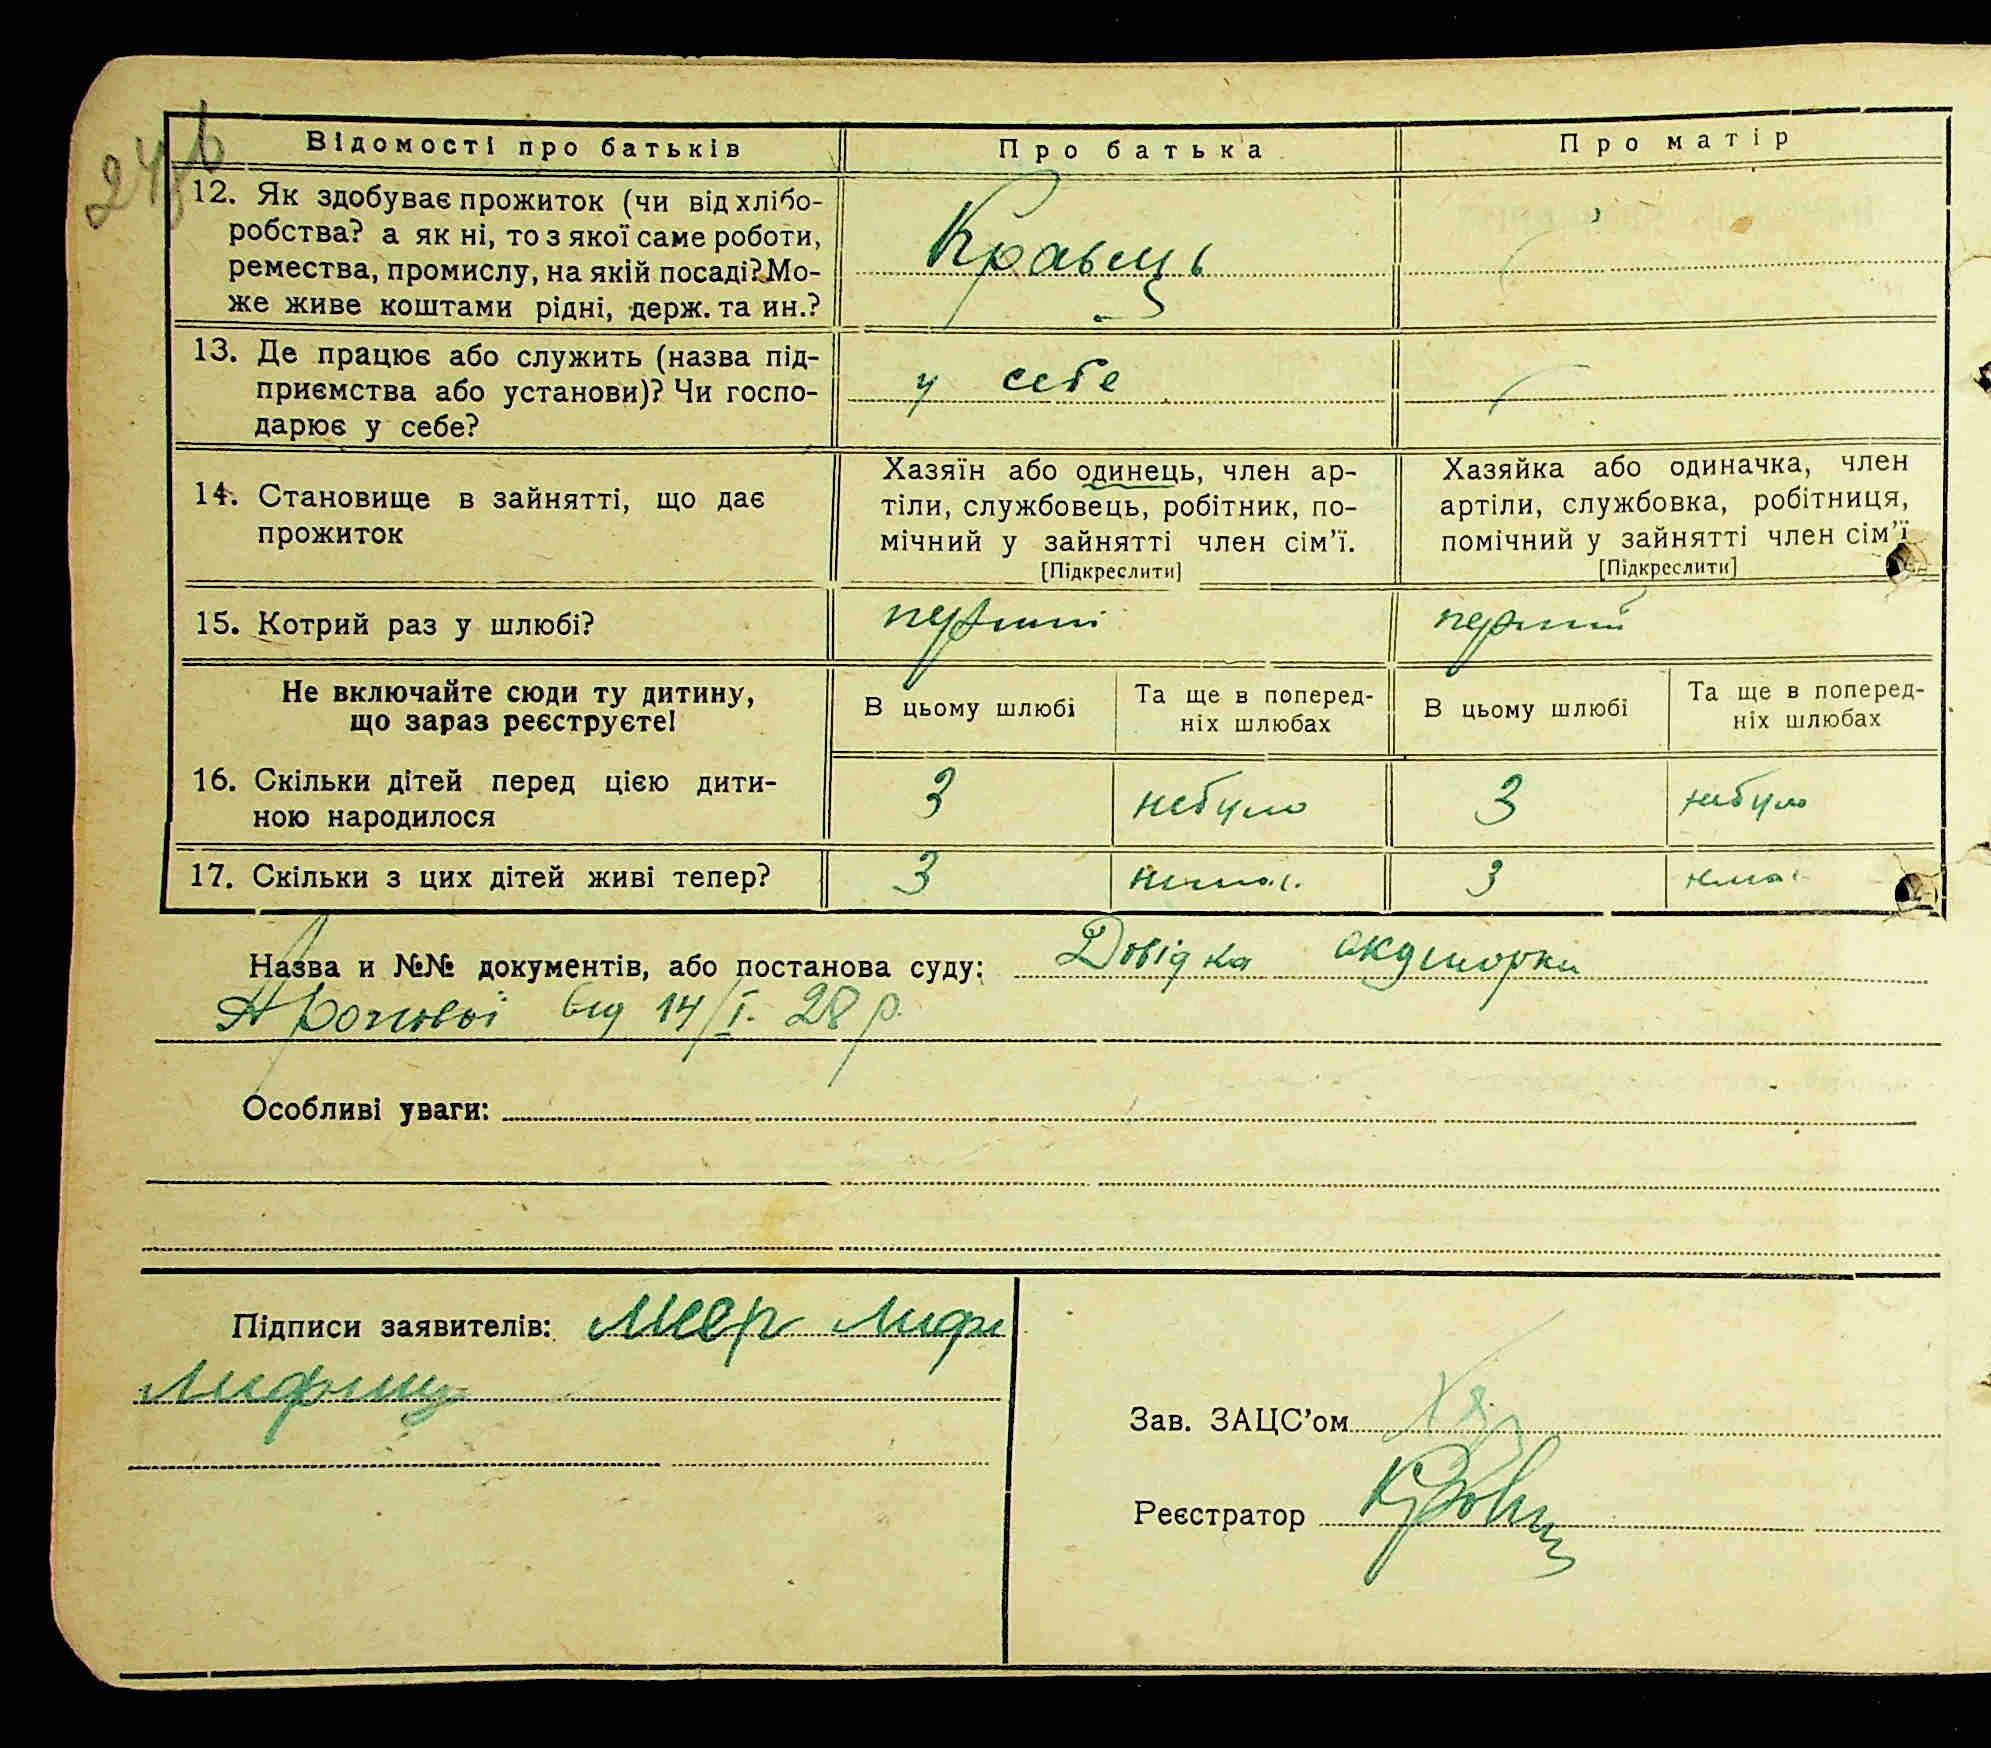 24
Відомості про батьків Про батька Про матір
12. Як здобуває прожиток (чи від хлібо-
робства? а як ні, то з якої саме роботи,
ремества, промислу, на якій посаді? Мо-
же живе коштами рідні, держ. та ин.?
Кравець
13. Де працює або служить (назва під-
приємства або установи)? Чи госпо-
дарює у себе?
у себе
14. Становище в зайнятті, що дає
прожиток
Хазяїн або одинець, член ар-
тіли, службовець, робітник, по-
мічний у зайнятті член сім'ї.
[Підкреслити]
Хазяйка або одиначка, член
артіли, службовка, робітниця,
помічний у зайнятті член сім'ї
[Підкреслити]
15. Котрий раз у шлюбі? перший перший
Не включайте сюди ту дитину,
що зараз реєструєте!
В цьому шлюбі
Та ще в поперед-
ніх шлюбах
В цьому шлюбі
Та ще в поперед-
ніх шлюбах
16. Скільки дітей перед цією дити-
ною народилося
3 небуло 3 небуло
17. Скільки з цих дітей живі тепер? 3 немає 3 немає
Назва и №№ документів, або постанова суду: Довідка акушорки
Аронової від 14/I. 28 р.
Особливі уваги:
Підписи заявителів: Меер Лифи
Лифшиц
Зав. ЗАЦС'ом
Реєстратор